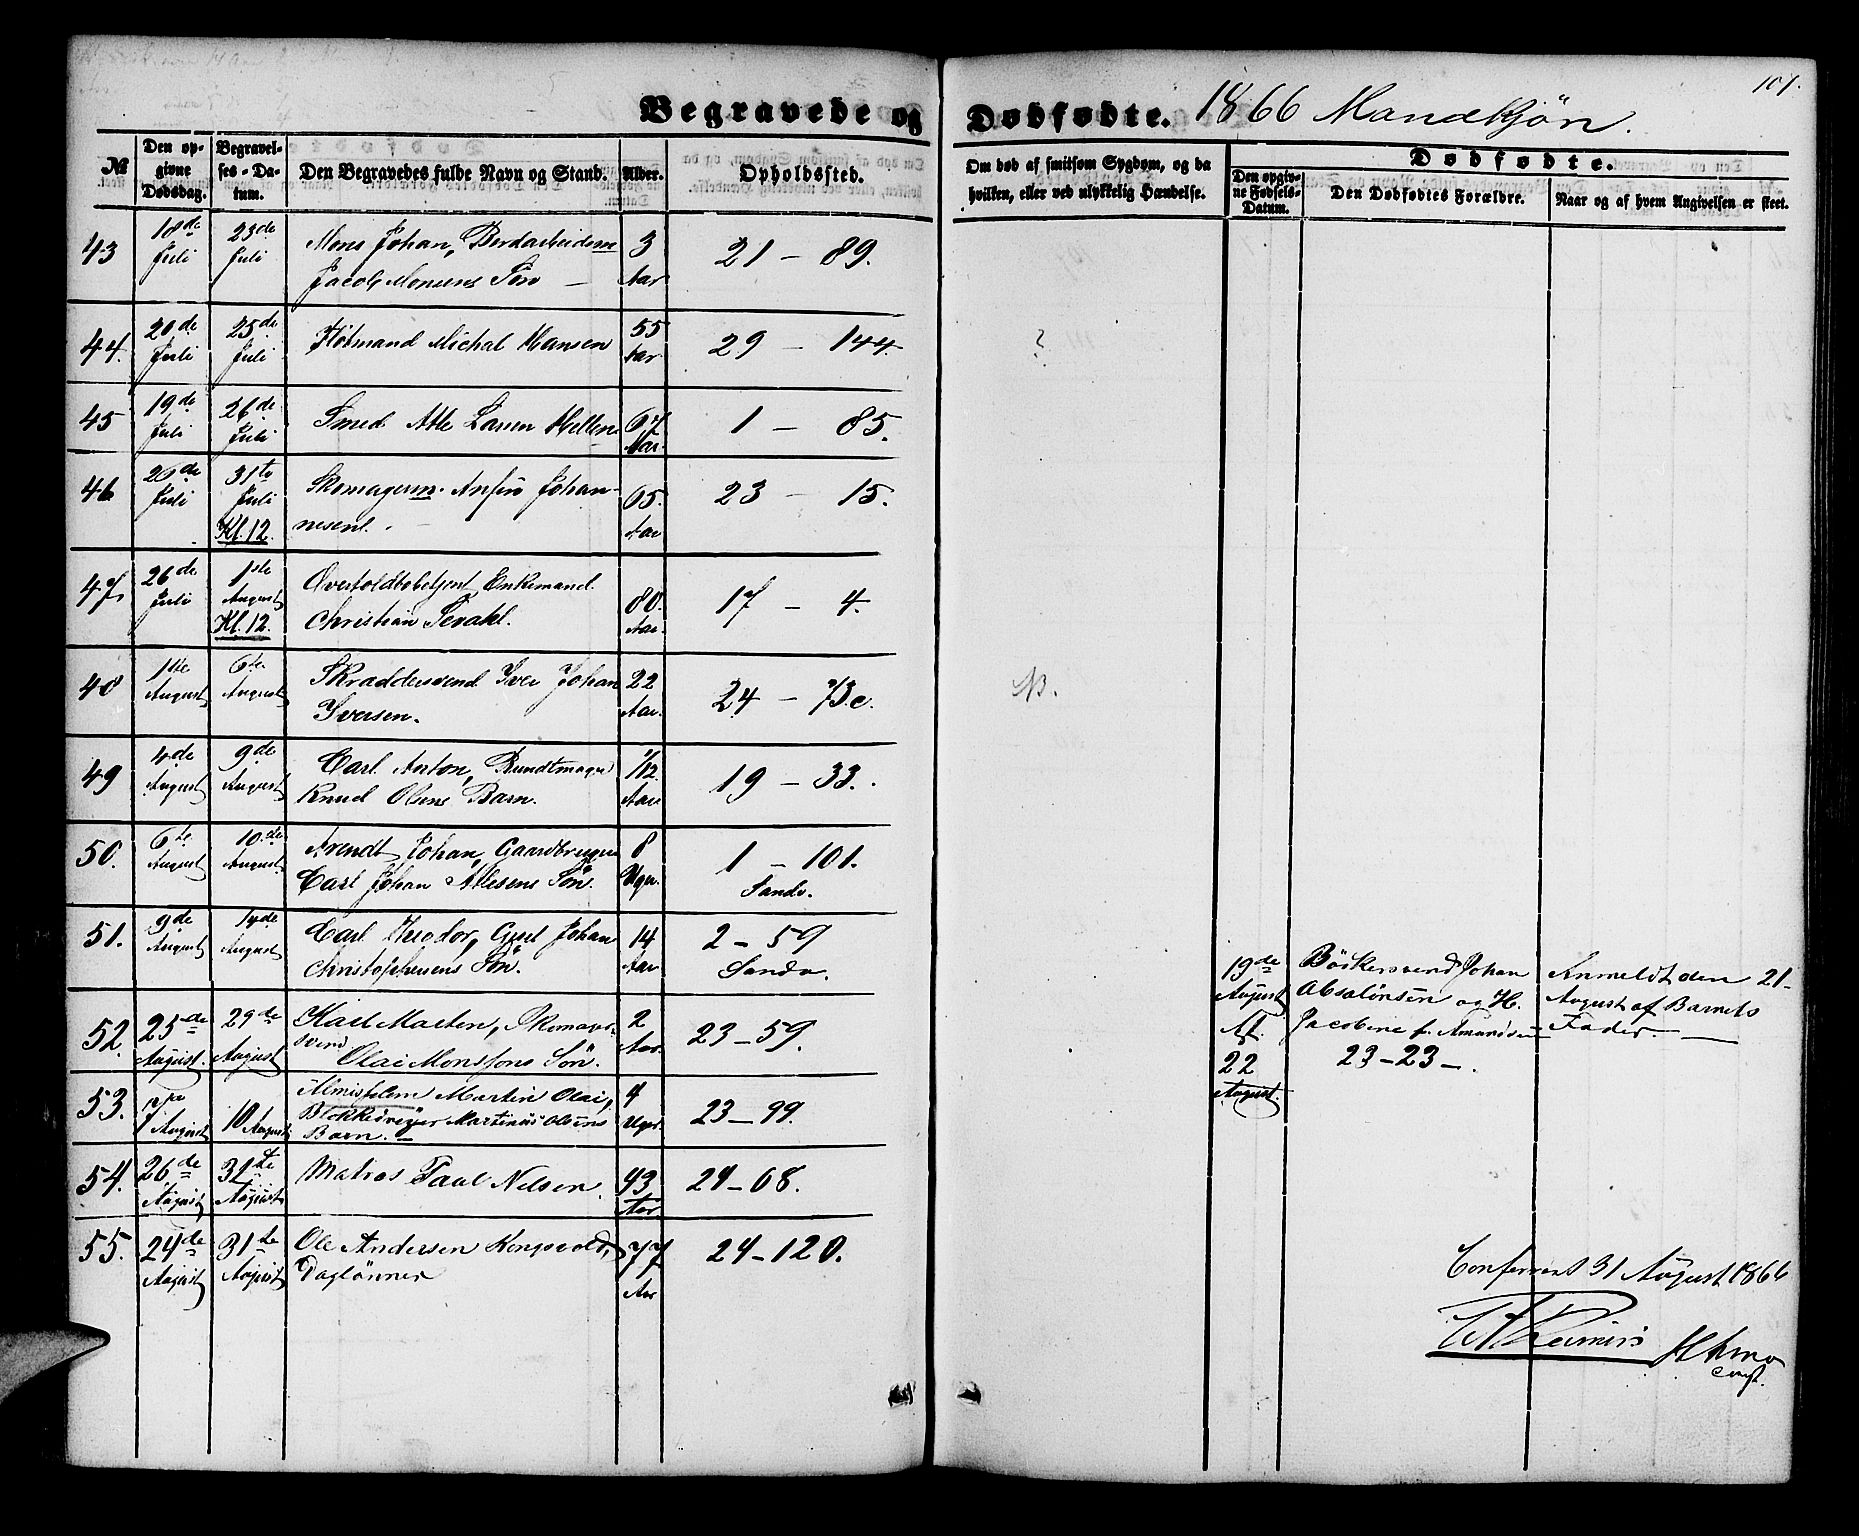 107.
Begravede og Dødfødte. 1866 Mandkjøn.
№
Den opgivne Dødsdag.
Begravelses-Datum.
Den Begravedes fulde Navn og Stand.
Alder.
Opholdssted.
Om død af smitsom Sygdom, og da hvilken, eller ved ulykkelig Hændelse.
Dødfødte.
Den opgivne Fødsels-Datum.
Den Dødfødtes Forældre.
Naar og af hvem Angivelsen er skeet.
43 18de Juli 23de Juli Mons Johan, 3 Aar 21 – 89.
Jacob Monsens Søn –
44. 20de Juli 25de Juli Michal Hansen 55 Aar 29 – 144. ?
45 19de Juli 26de Juli Smed Atle Larsen Hellen 67 Aar. 1 – 85.
46 26de Juli 31te Juli Kl. 12. Skomagerm. Anfin Johan- 65. Aar 23 – 15.
nesen.
47. 26de Juli 1ste August Kl. 12. Enkemand 80. Aar. 17 – 4.
Christian
48 1ste August 6te August Skræddersvend Iver Johan 22 Aar. 24 – 73.c. N.
Iversen.
49 4de August 9de August Carl Anton, Bundtmager 1/12. Aar 19 – 33.
Knud Olsens Barn.
50. 6te August 10de August Arendt Johan, Gaardbruger 8 Uger. 1 – 101.
Carl Johan Atlesens Søn. Sandv.
51. 9de August 14de August Carl Theodor, Johan 14 Aar 2 – 59
Christophersens Søn. Sandv.
19de August Bödkersvend Johan Anmeldt den 21-
Absalonsen og H. August af Barnets
Jacobine f. Amundsen Fader. –
22 August. 23–23–.
52. 25de August. 29de August Karl Martin, Skomager- 2 Aar. 23 – 59.
svend
Olai Monssons Søn.
53. 7 August 10 August Martin Olai, 4 Uger. 23 – 99.
Blokkedreier Martinus Olsens
Barn. –
54. 26de August 31te August Matros Paul Nilsen. 43 Aar. 24 – 68.
55. 24de August 31te August Ole Andersen Kongsvold, 77 Aar 24 – 120.
Daglönner
Confereret 31 August 1866
Reimers
const.